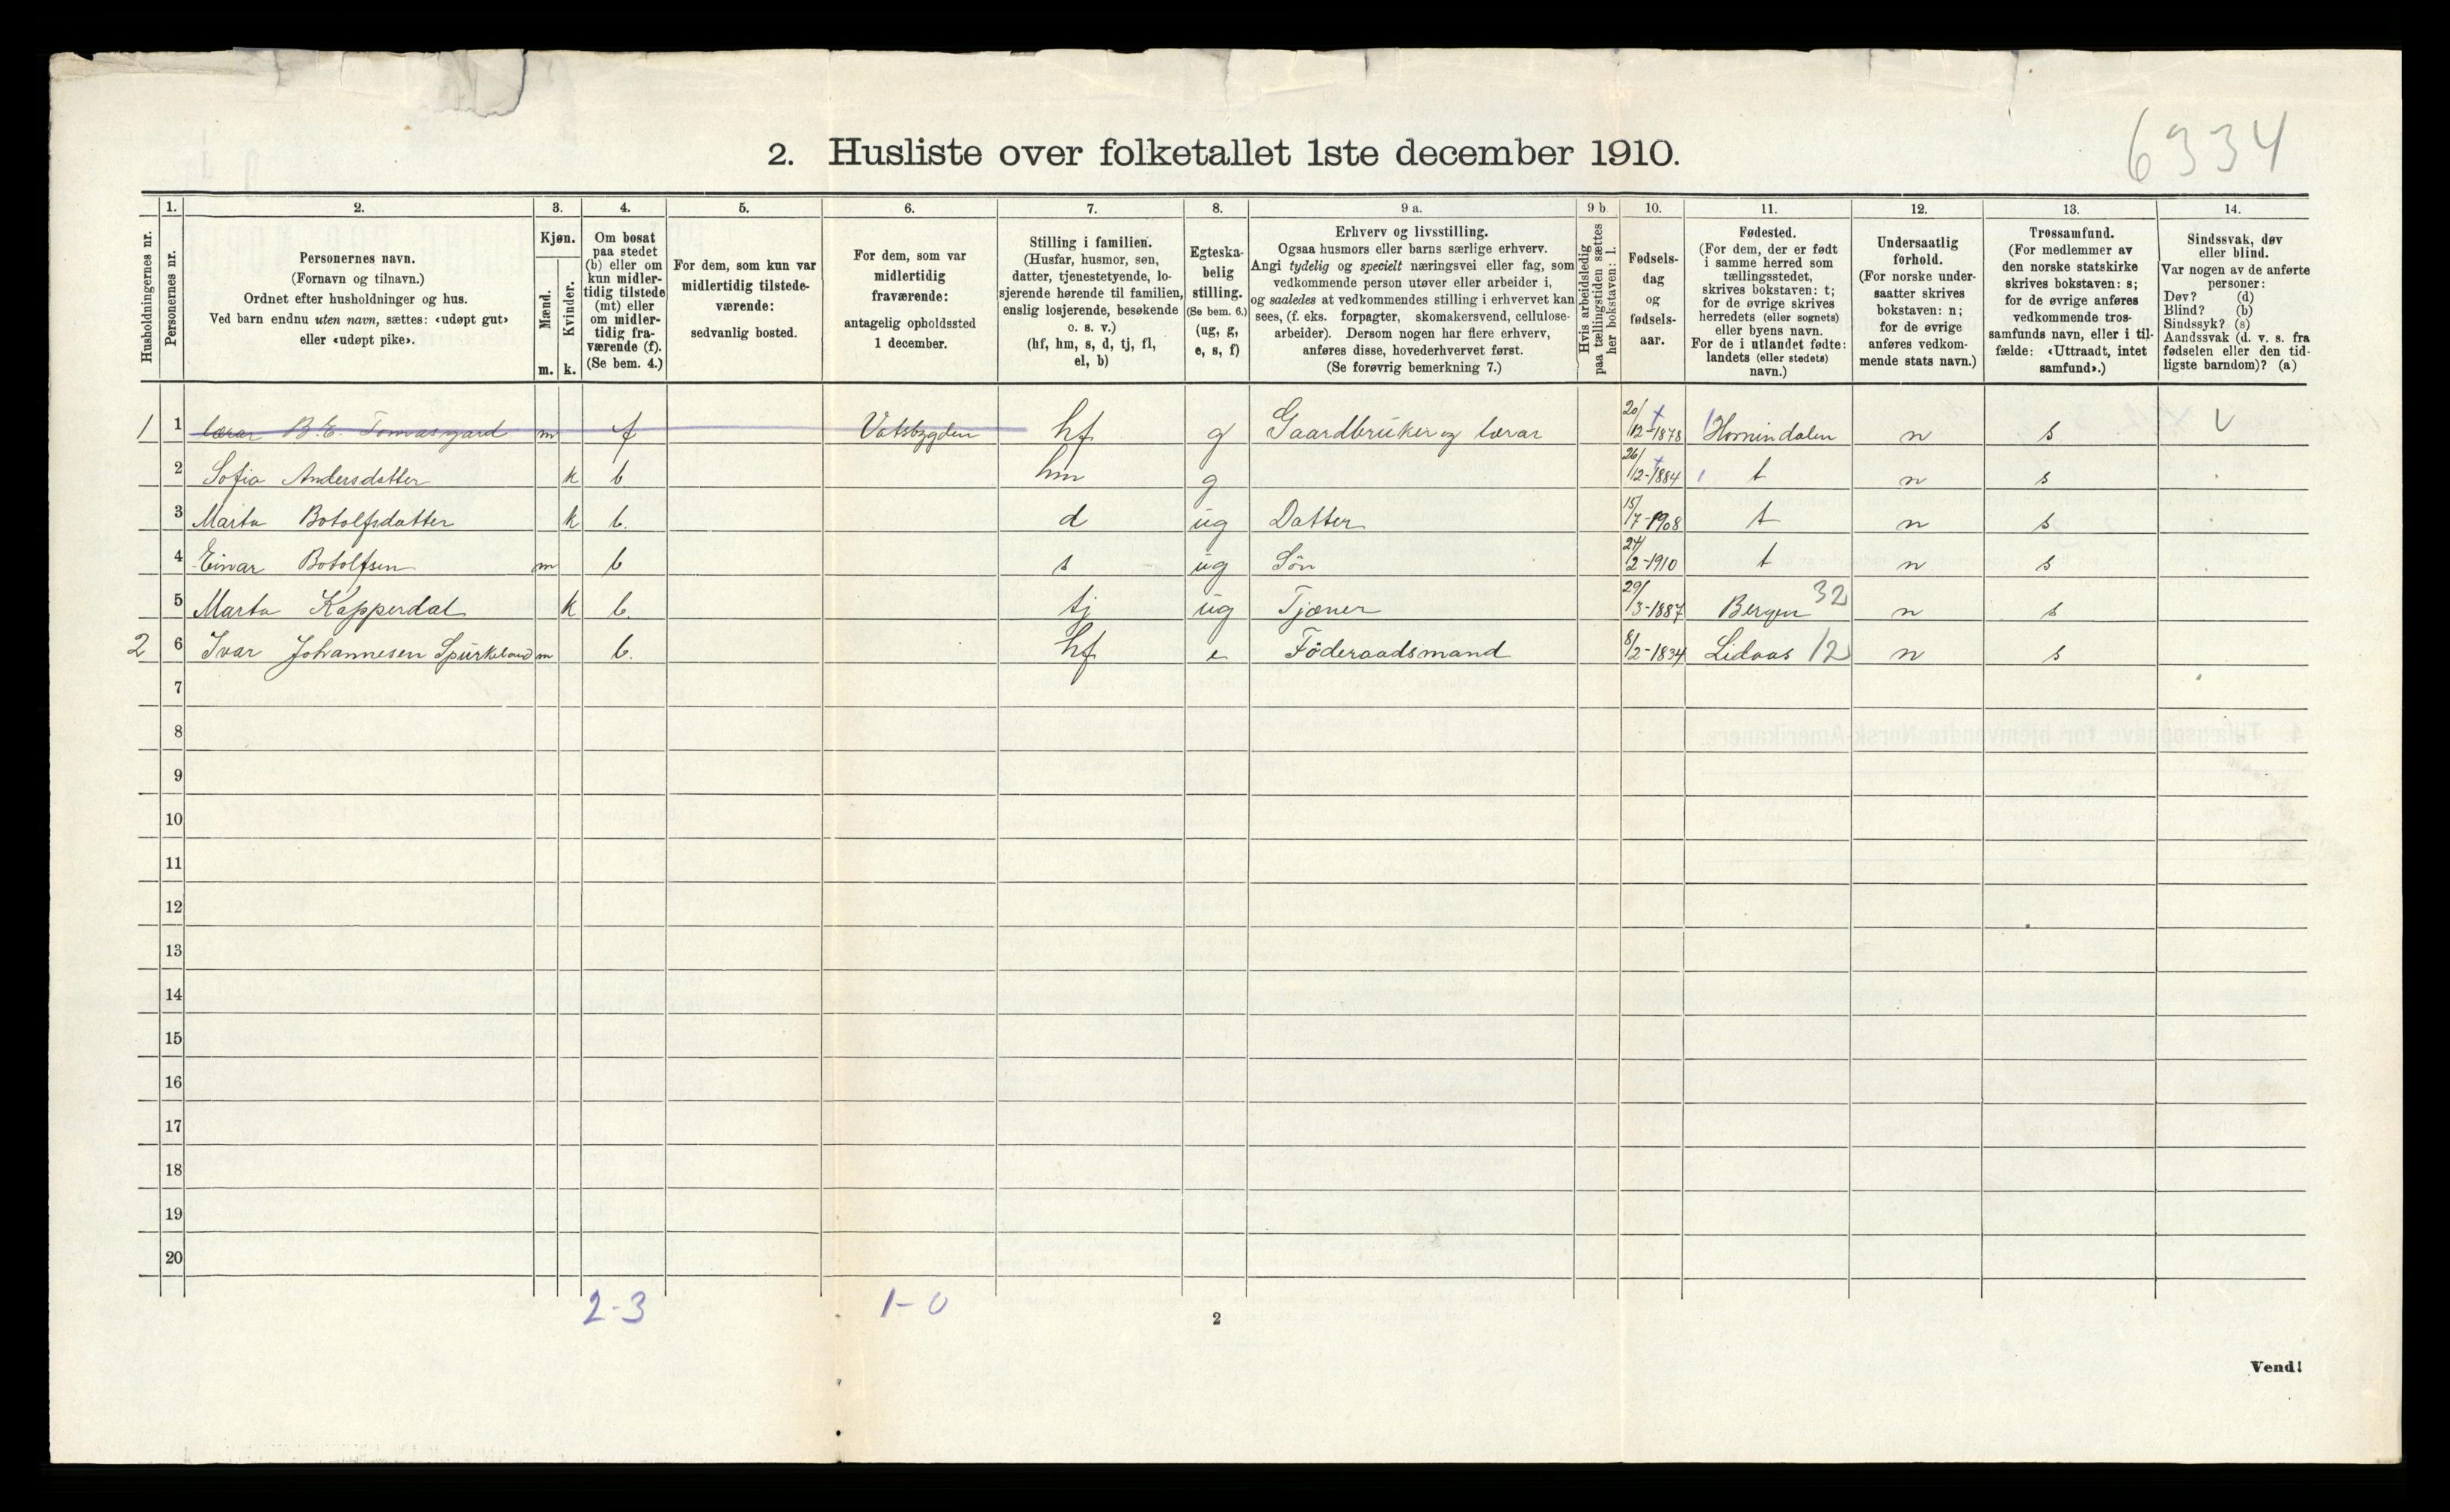 6334
2. Husliste over folketallet 1ste december 1910.
Husholdningernes nr.
1.
Personernes nr.
2.
Personernes navn.
(Fornavn og tilnavn.)
Ordnet efter husholdninger og hus.
Ved barn endnu uten navn, sættes: «udøpt gut»
eller «udøpt pike».
3.
Kjøn.
Mænd.
Kvinder.
m. k.
4.
Om bosat
paa stedet
(b) eller om
kun midler-
tidig tilstede
(mt) eller
om midler-
tidig fra-
værende (f).
(Se bem. 4.)
5.
For dem, som kun var
midlertidig tilstede-
værende:
sedvanlig bosted.
6.
For dem, som var
midlertidig
fraværende:
antagelig opholdssted
1 december.
7.
Stilling i familien.
(Husfar, husmor, søn,
datter, tjenestetyende, lo-
sjerende hørende til familien,
enslig losjerende, besøkende
o. s. v.)
(hf, hm, s, d, tj, fl,
el, b)
8.
Egteska-
belig
stilling.
(Se bem. 6.)
(ug, g,
e, s, f)
9 a.
Erhverv og livsstilling.
Ogsaa husmors eller barns særlige erhverv.
Angi tydelig og specielt næringsvei eller fag, som
vedkommende person utøver eller arbeider i,
og saaledes at vedkommendes stilling i erhvervet kan
sees, (f. eks. forpagter, skomakersvend, cellulose-
arbeider). Dersom nogen har flere erhverv,
anføres disse, hovederhvervet først.
(Se forøvrig bemerkning 7.)
9 b
Hvis arbeidsledig
paa tællingstiden sættes
her bokstaven: l.
10.
Fødsels-
dag
og
fødsels-
aar.
11.
Fødested.
(For dem, der er født
i samme herred som
tællingsstedet,
skrives bokstaven: t;
for de øvrige skrives
herredets (eller sognets)
eller byens navn.
For de i utlandet fødte:
landets (eller stedets)
navn.)
12.
Undersaatlig
forhold.
(For norske under-
saatter skrives
bokstaven: n;
for de øvrige
anføres vedkom-
mende stats navn.)
13.
Trossamfund.
(For medlemmer av
den norske statskirke
skrives bokstaven: s;
for de øvrige anføres
vedkommende tros-
samfunds navn, eller i til-
fælde: «Uttraadt, intet
samfund».)
14.
Sindssvak, døv
eller blind.
Var nogen av de anførte
personer:
Døv? (d)
Blind? (b)
Sindssyk? (s)
Aandssvak (d. v. s. fra
fødselen eller den tid-
ligste barndom)? (a)
1 1 lærar B. E. Tomasgard m f Vatsbygden hf g Gaardbruker og lærar 20/12-1878 Hornindalen n s
2 Sofia Andersdatter k b hm g 26/12-1884 t n s
3 Marta Botolfsdatter k b. d ug Datter 15/7-1908 t n s
4 Einar Botolfsen m b s ug Sön 24/2-1910 t n s
5 Marta Kapperdal k b. tj ug Tjæner 29/3-1887 Bergen 32 n s
2 6 Ivar Johannesen Spurkeland m b. hf e Föderaadsmand 8/2-1834 Lidaas 12 n s
7
8
9
10
11
12
13
14
15
16
17
18
19
20
2-3 1-0
2
Vend!